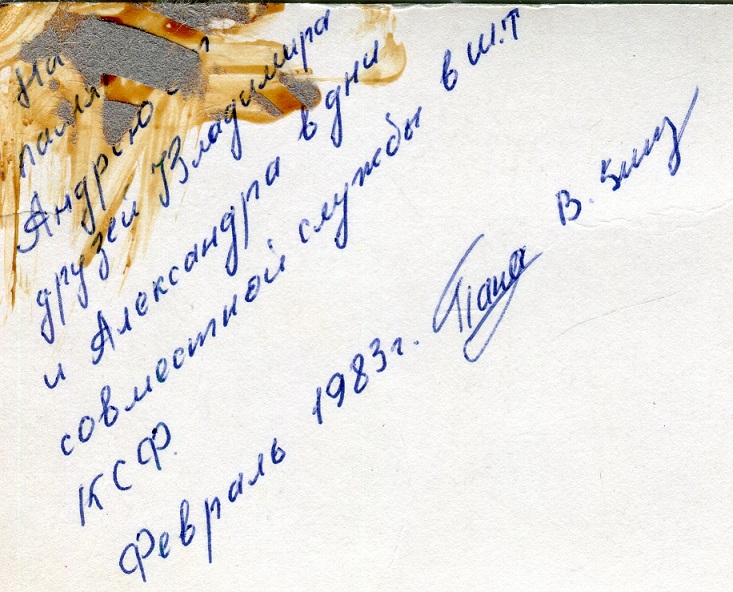 На
Андрею
друзей Владимира
и Александра в дни
совместной службы в Ш.Т
КСФ.
Февраль 1983г.
В.